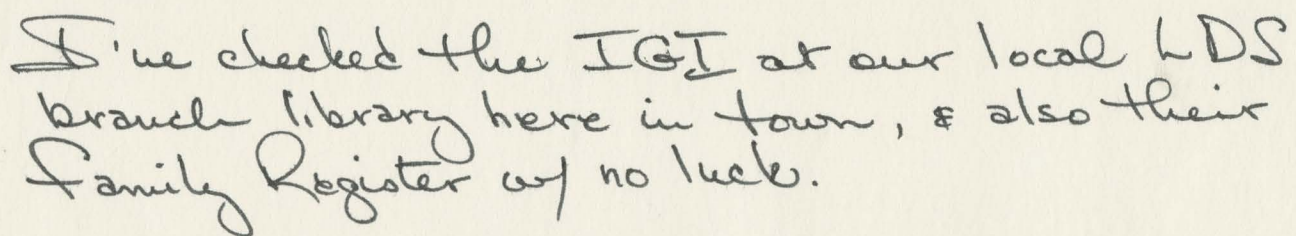 I've checked the IGI at our local LDS
branch library here in town, & also their
Family Register w/ no luck.